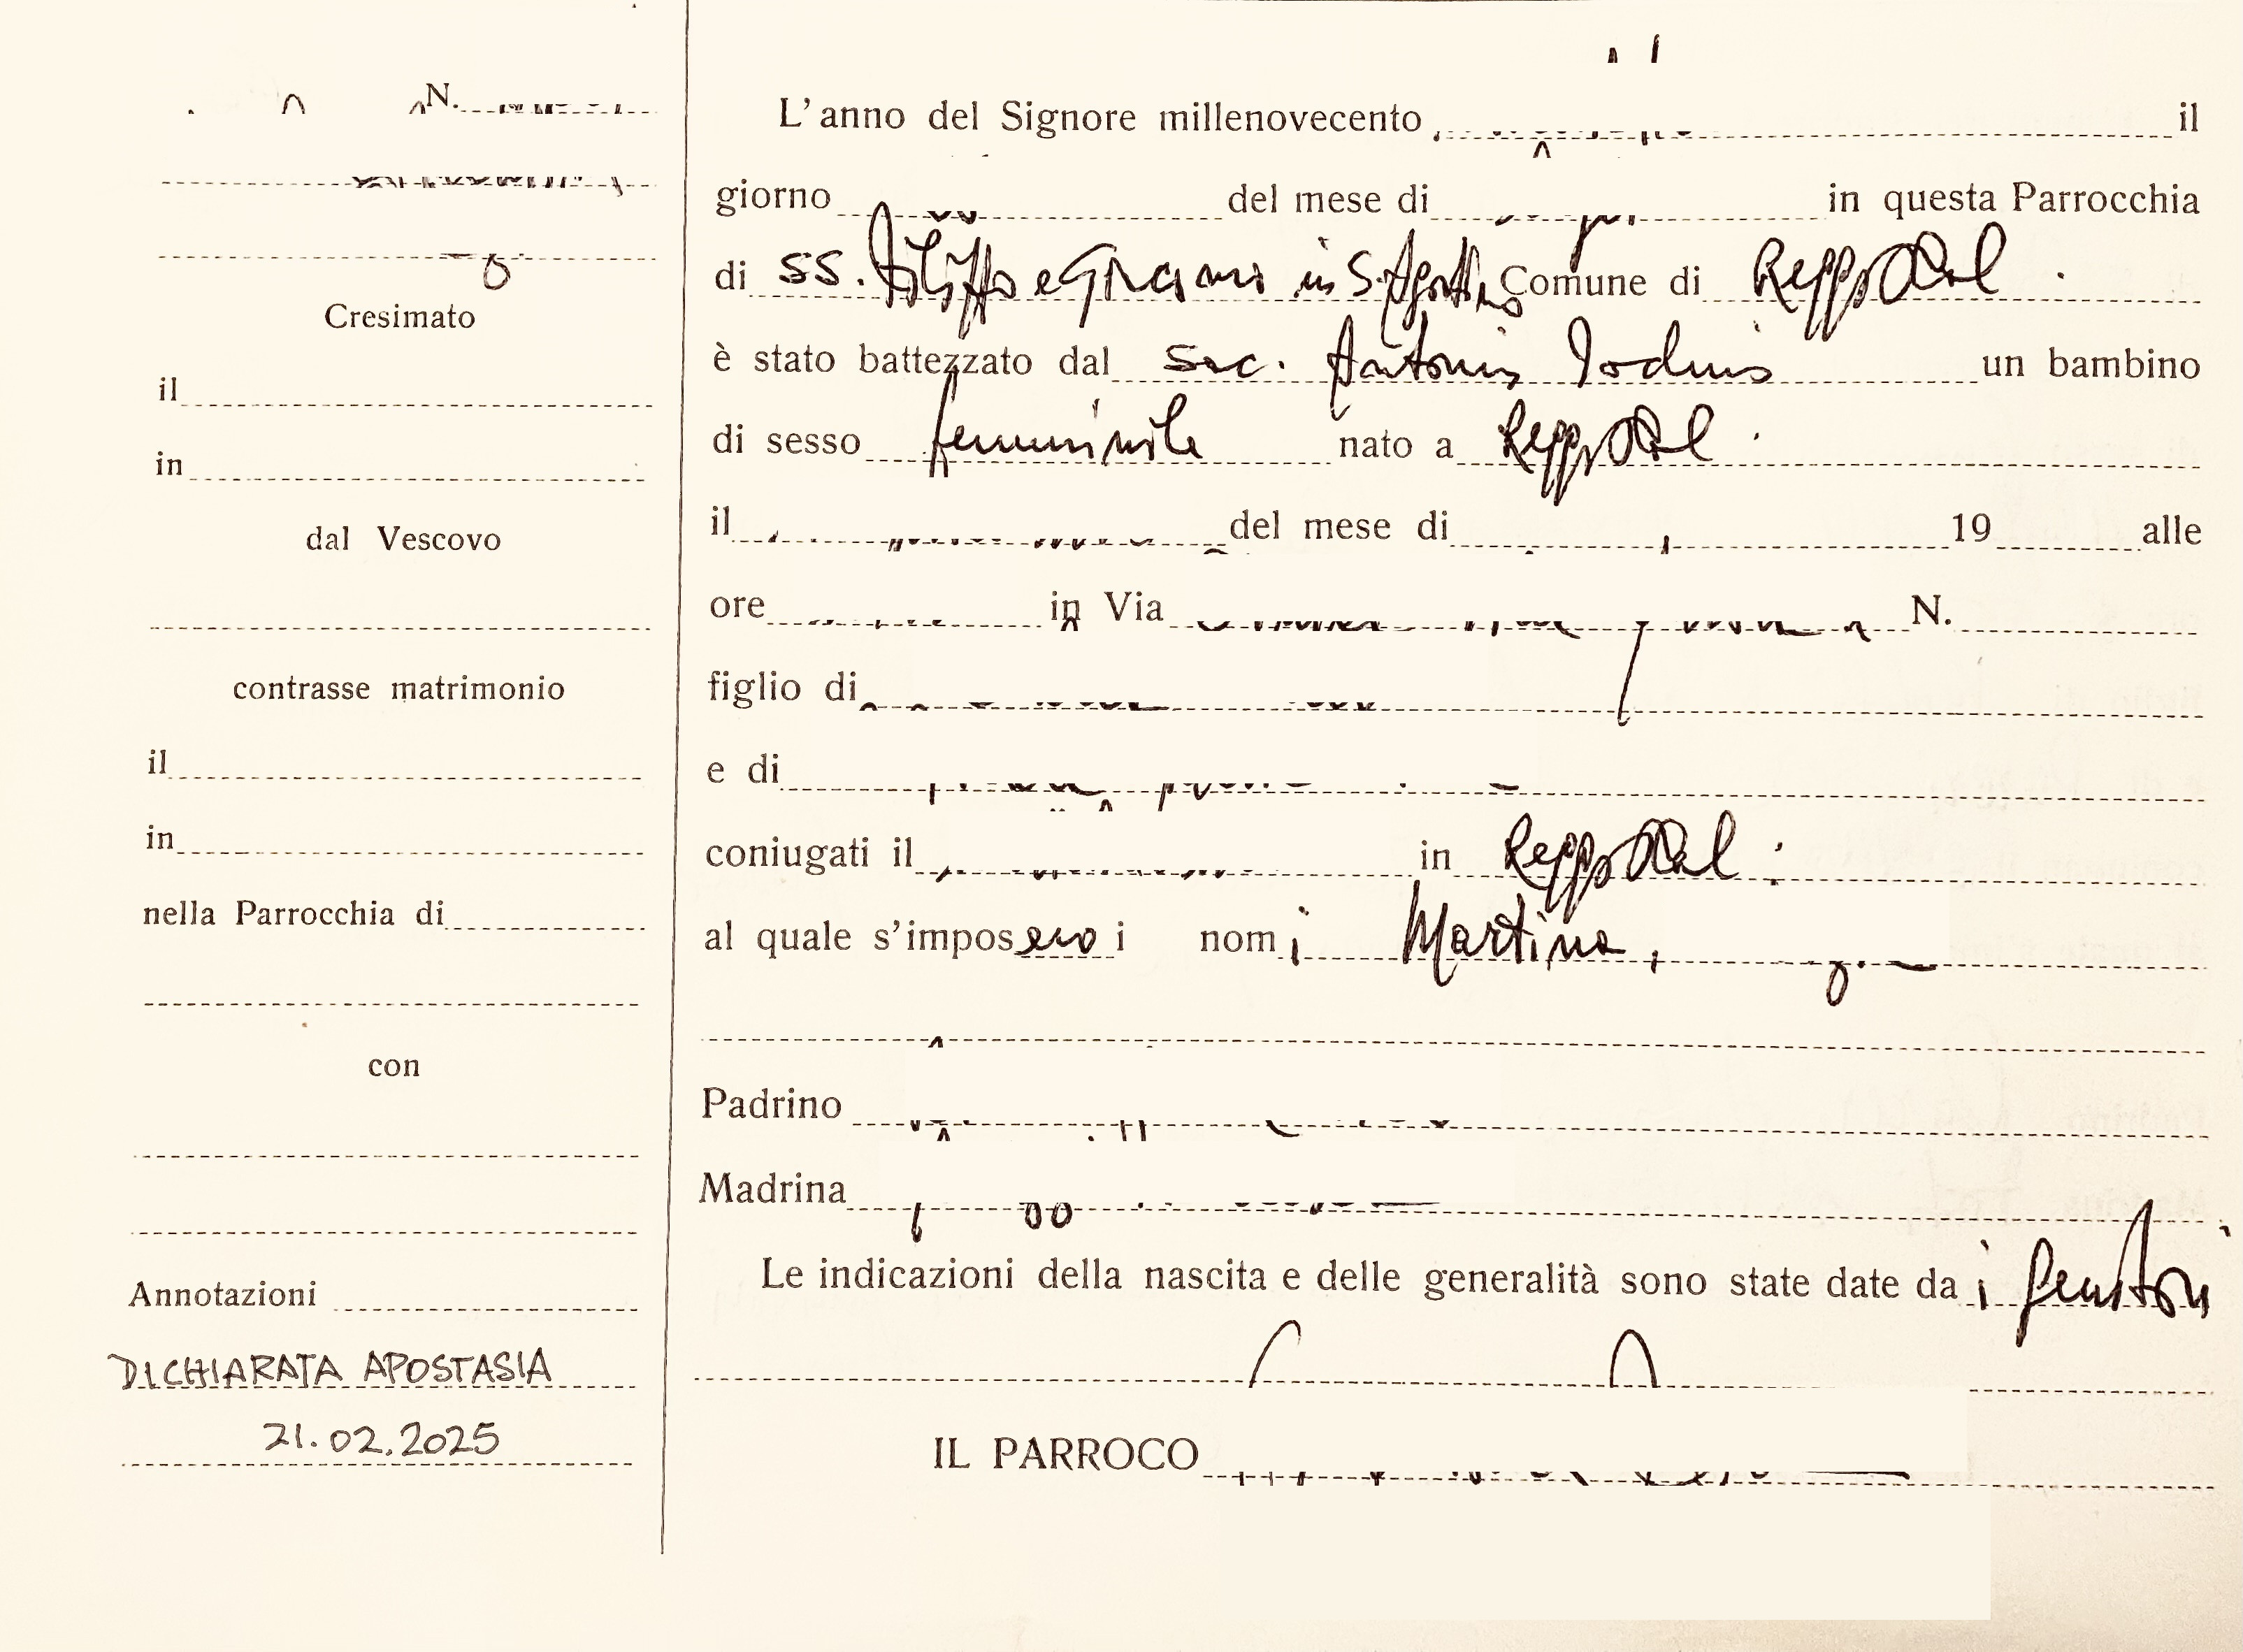 N.
Cresimato
il
in
dal Vescovo
contrasse matrimonio
il
in
nella Parrocchia di
con
Annotazioni
DICHIARATA APOSTASIA
21.02.2025
L'anno del Signore millenovecento il
giorno del mese di in questa Parrocchia
di SS. Filippo e Giacomo in S. Agostino Comune di Reggio Cal.
è stato battezzato dal Sac. Antonio un bambino
di sesso femminile nato a Reggio Cal.
il del mese di 19 alle
ore in Via N.
figlio di
e di
coniugati il in Reggio Cal.
al quale s'imposero i nomi Martina,
Padrino
Madrina
Le indicazioni della nascita e delle generalità sono state date da i genitori
IL PARROCO